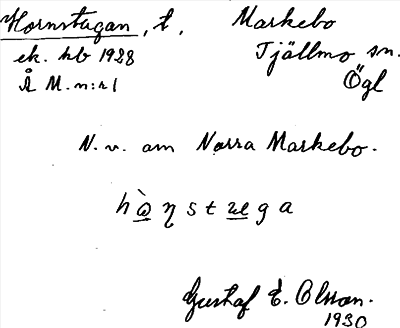 Hornstugan, t. Markebo
ek. kb 1928 Tjällmo sn.
Å M. n:r 1 Ögl
N. v. om Norra Markebo.
Gustaf E. Olsson.
1930